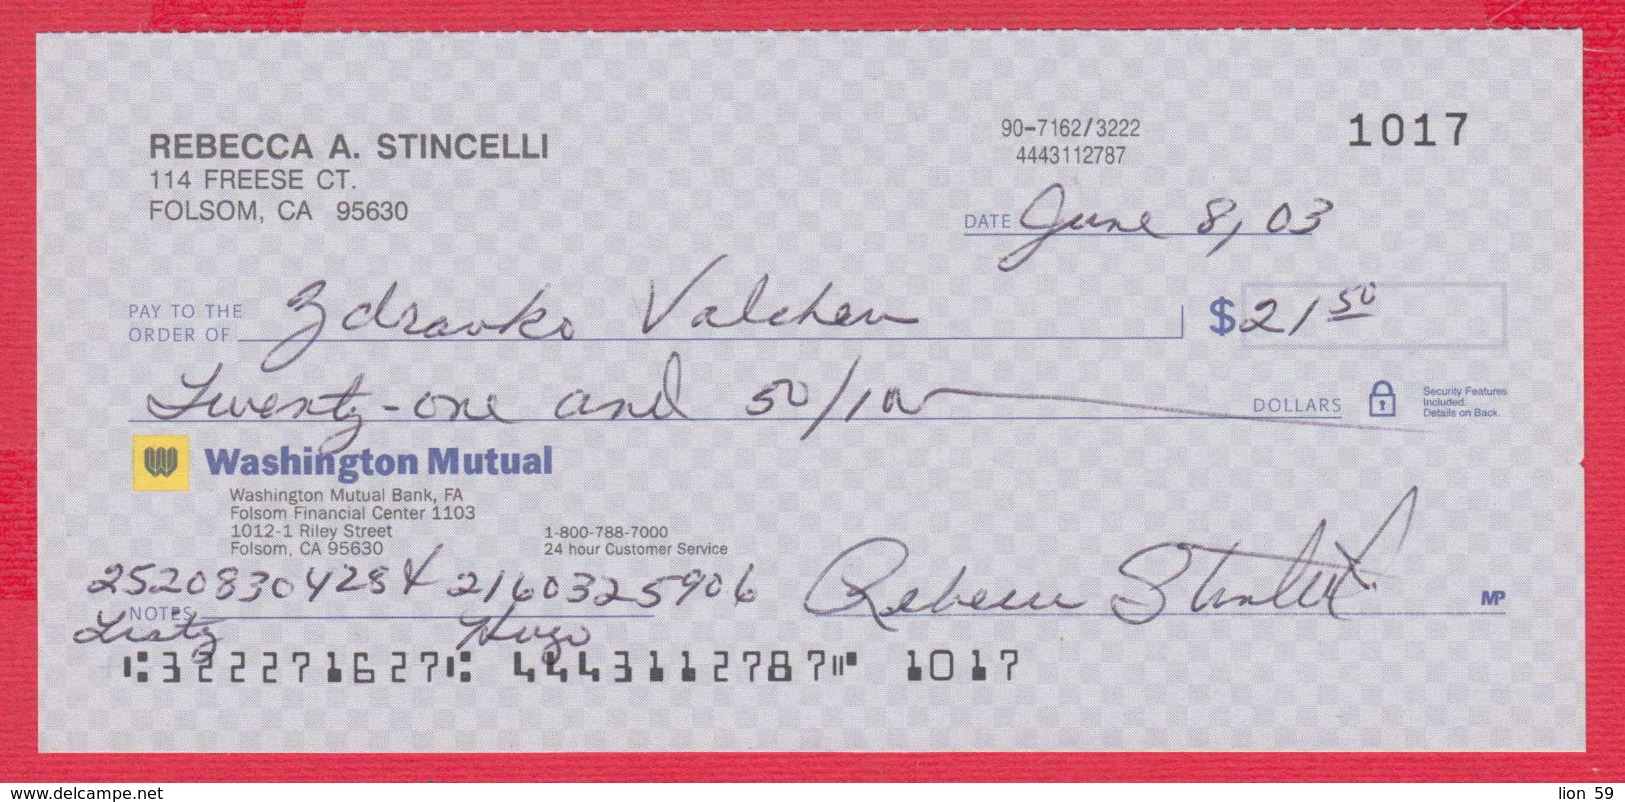 REBECCA A. STINCELLI
114 FREESE CT.
FOLSOM, CA 95630
90-7162/3222
4443112787
1017
DATE June 8, 03
PAY TO THE
ORDER OF Zdravko Valchev
$ 21 50
Twenty-one and 50/100 DOLLARS
Security Features
Included.
Details on Back.
Washington Mutual
Washington Mutual Bank, FA
Folsom Financial Center 1103
1012-1 Riley Street
Folsom, CA 95630
1-800-788-7000
24 hour Customer Service
2520830428 & 2160325906
NOTES
Hugo
Rebecca Stincelli
MP
322271627 4443112787 1017
www.delcampe.net
lion 59